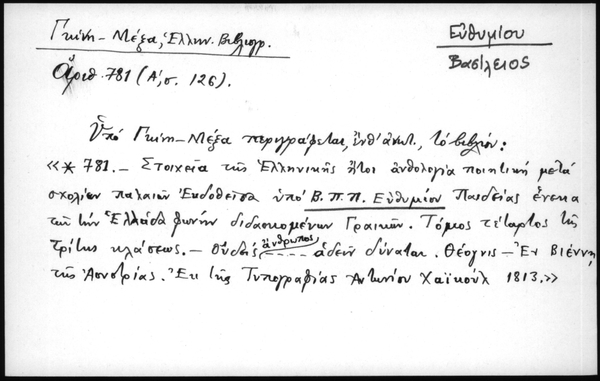 Γκίνη-Μέξα, Ἑλλην. Βιβλιογρ.
Εὐθυμίου
Βασίλειος
ἀριθ. 781 (Α΄, σ. 126).
Ὑπό Γκίνη-Μέξα περιγράφεται, ἐνθ' ἀνωτ., τό βιβλίον:
«*781.- Στοιχεῖα τῆς Ἑλληνικῆς ἤτοι ἀνθολογία ποιητική μετά
σχολίων παλαιῶν Ἐκδοθεῖσα ὑπό Β.Π.Π. Εὐθυμίου Παιδείας ἕνεκα
τῶν τήν Ἑλλάδα φωνήν διδασκομένων Γραικῶν. Τόμος τέταρτος τῆς
Τρίτης κλάσεως.- Οὐδείς ἄνθρωπος .... ἀδεῖν δύναται. Θέογνις - Ἐν Βιέννῃ
τῆς Αουστρίας. Ἐκ τῆς Τυπογραφίας Ἀντωνίου Χαϊκούλ 1813.»